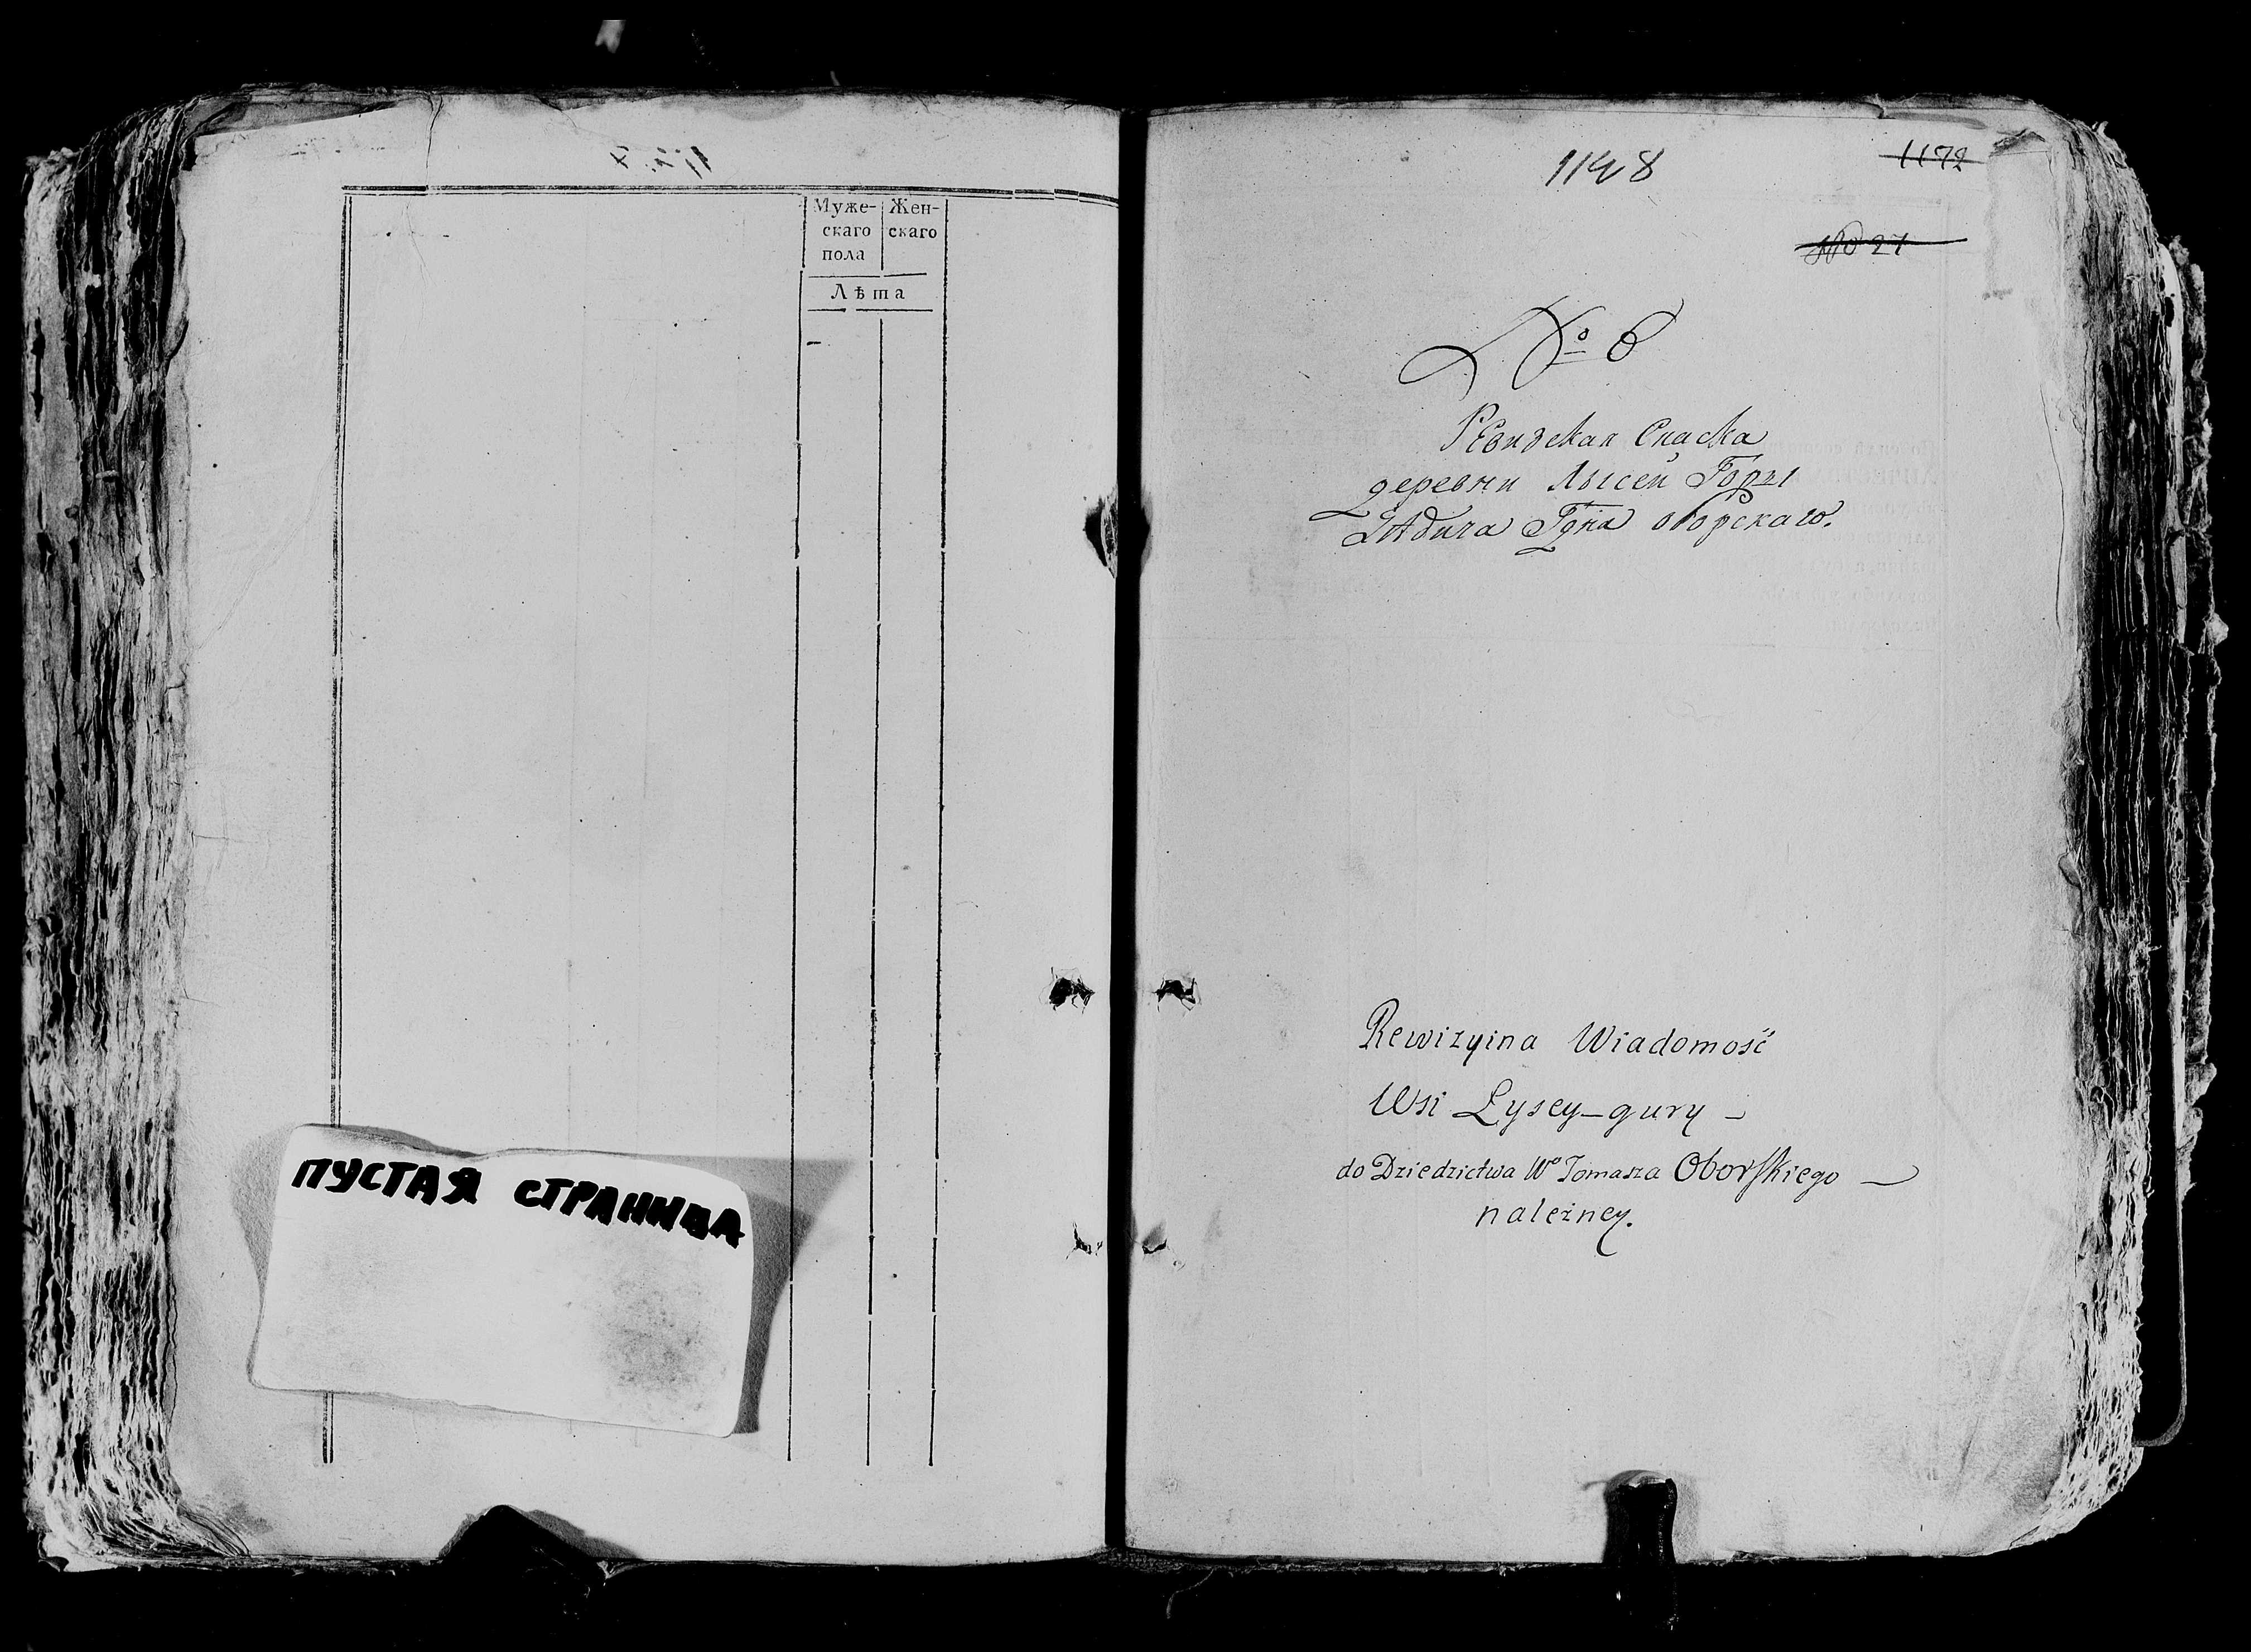 Муже- Жен-
скаго скаго
пола
Лѣта
ПУСТАЯ СТРАНИЦА
1148
1172
№ 21
№ 6
Ревизская Сказка
деревни Лысей Горы
Гдна оборскаго.
Rewizyina Wiadomość
Wsi Łysey-gury -
do Dziedzictwa Wº Tomasza Oborskiego -
należney.